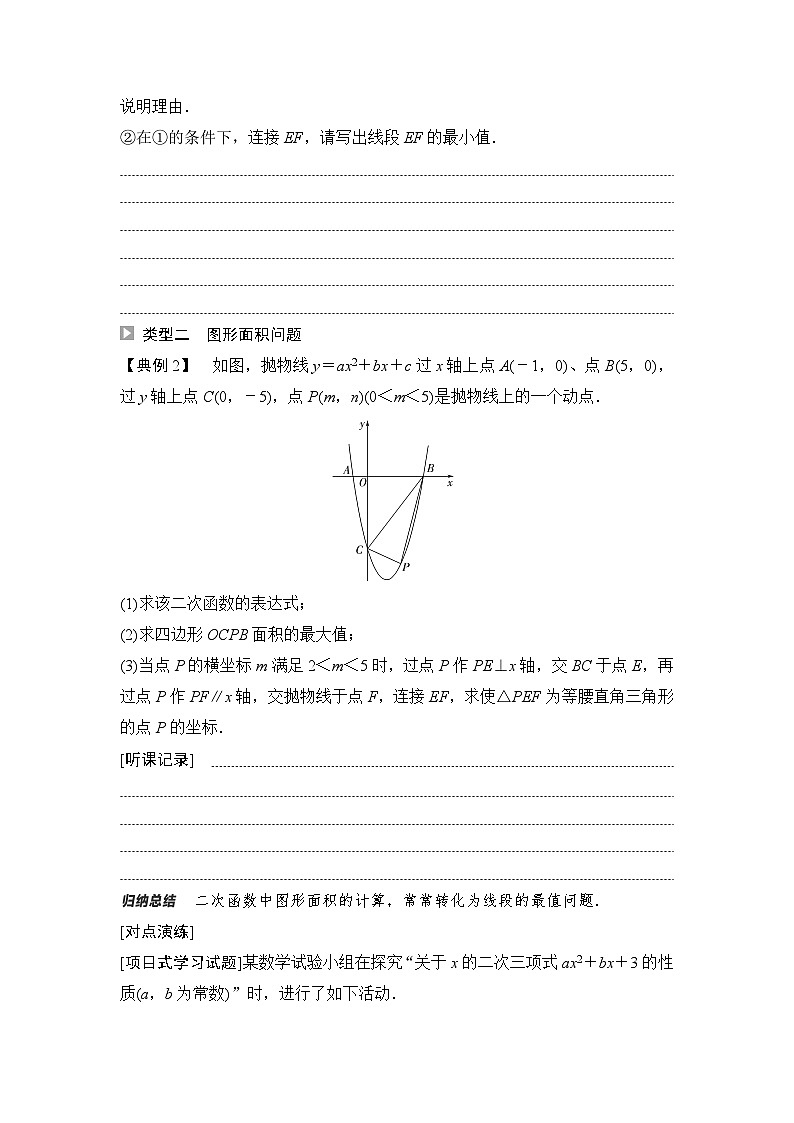 说明理由.
②在①的条件下，连接EF，请写出线段EF的最小值.
类型二　图形面积问题
【典例2】　如图，抛物线y＝ax²＋bx＋c过x轴上点A(－1，0)、点B(5，0)，
过y轴上点C(0，－5)，点P(m，n)(0＜m＜5)是抛物线上的一个动点.
y
A
O
B
x
C
P
(1)求该二次函数的表达式；
(2)求四边形OCPB面积的最大值；
(3)当点P的横坐标m满足2＜m＜5时，过点P作PE⊥x轴，交BC于点E，再
过点P作PF∥x轴，交抛物线于点F，连接EF，求使△PEF为等腰直角三角形
的点P的坐标.
[听课记录]
归纳总结　二次函数中图形面积的计算，常常转化为线段的最值问题.
[对点演练]
[项日式学习试题]某数学试验小组在探究“关于x的二次三项式ax²＋bx＋3的性
质(a，b为常数)”时，进行了如下活动.